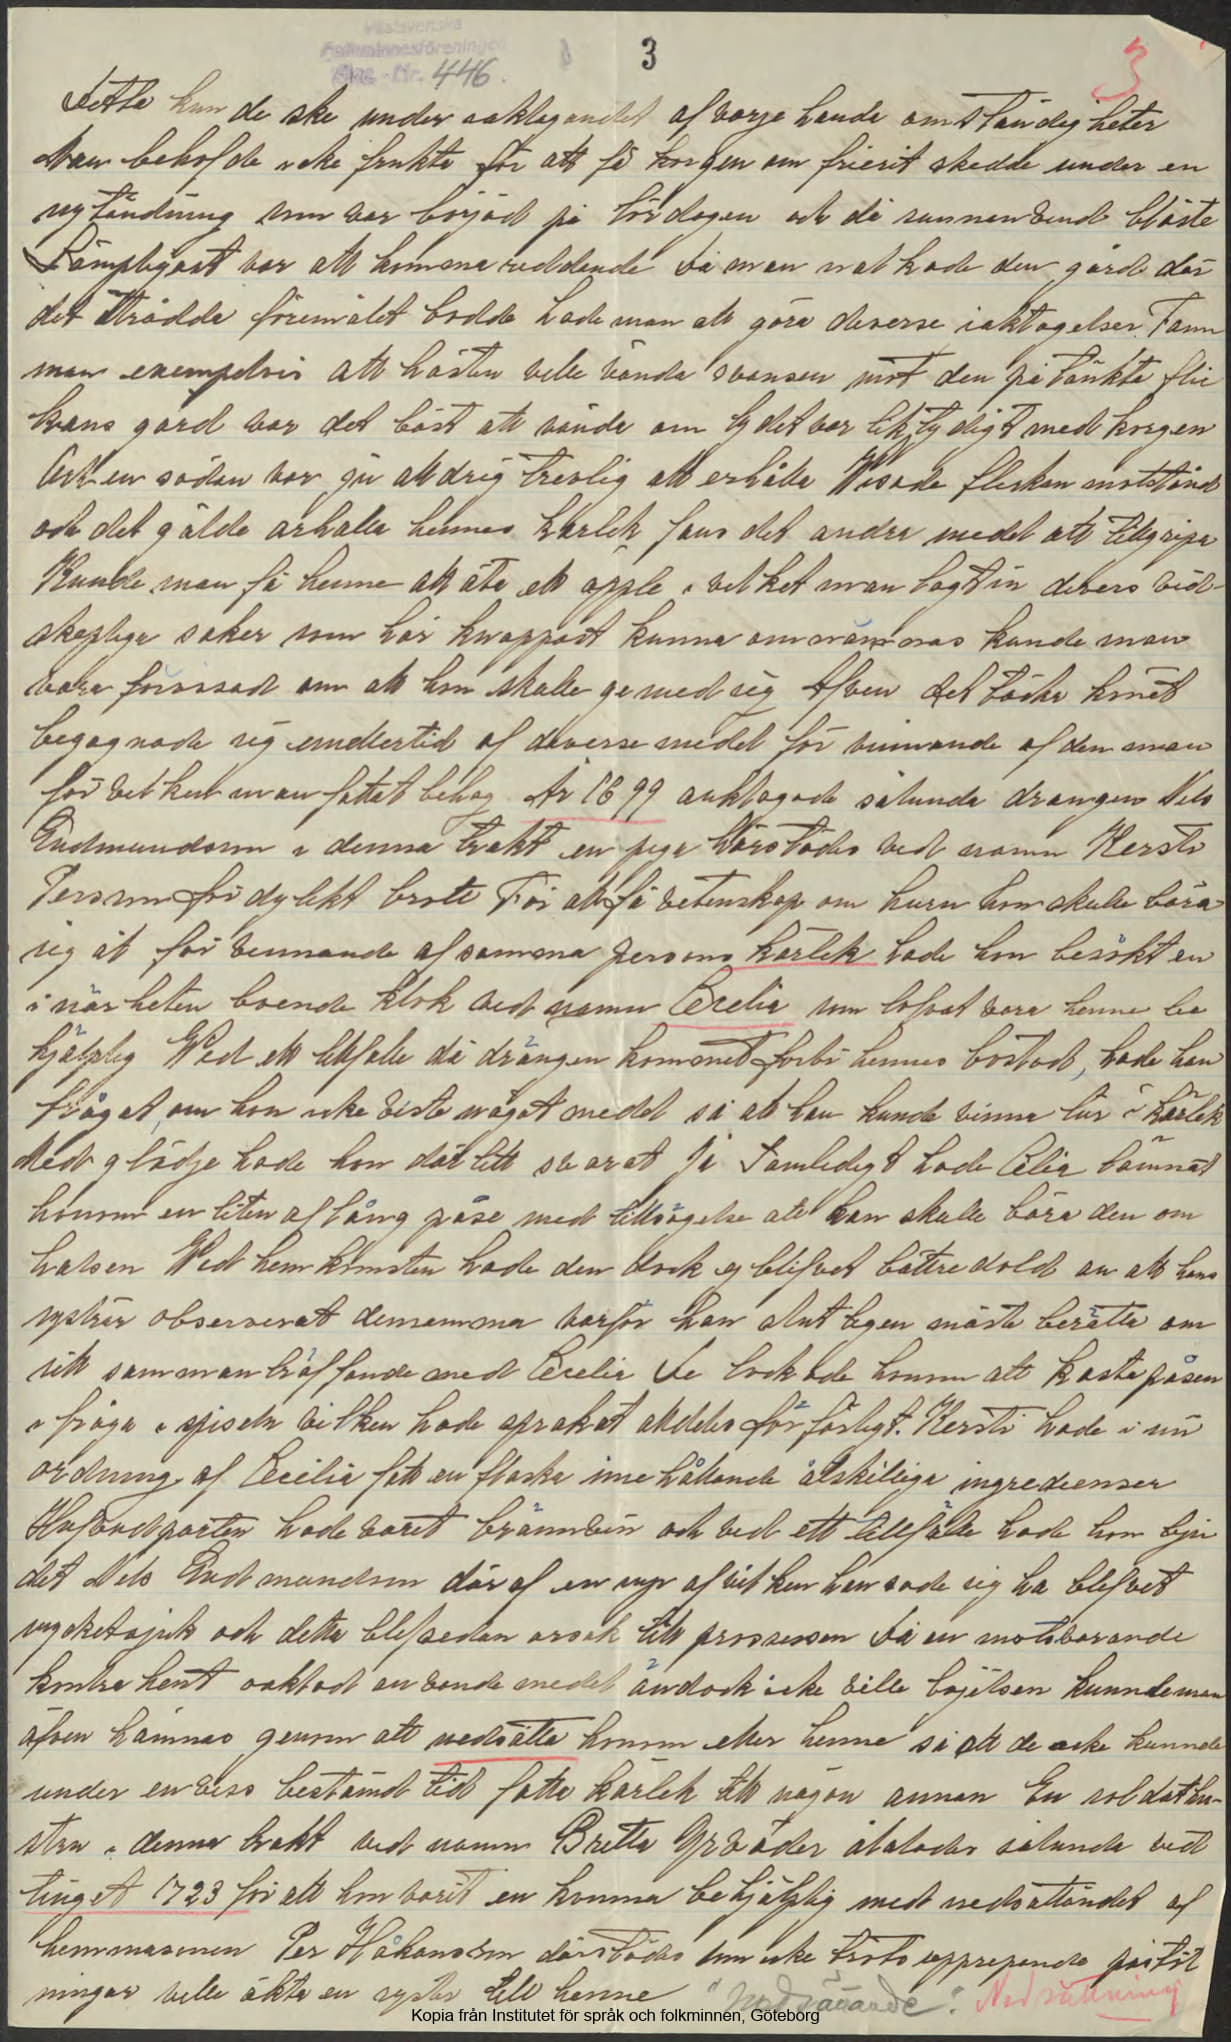 Västsvenska
Folkminnesföreningen
Acc.-Nr. 446.
3
3
Detta kun de ske under iakttagandet af varje handa omständigheter
Man behöfde icke frukta för att få korgen om frieriet skedde under en
nytändning som var börjad på lördagen och då sunnanvind blåste
Lämpligast var att komma riddande Då man nalkade den gård där
det åtrådda föremålet bodde hade man att göra deverse iakttagelser. Fann
man exempelvis att hästen ville vända svansen mot den på tänkta flic
kans gård var det bäst att vända om ty det var liktydigt med korgen
Och en sådan var ju alldrig trevlig att erhålla Visade flickan motstånd
och det gälde erhålla hennes kärlek fans det andra medel att tillgripa
Kunde man få henne att äta ett äpple i vilket man lagt in divers vid-
skepliga saker som här knappast kunna omnämnas kunde man
vara förvissad om att hon skulle ge med sig Äfven det täcka könet
begagnade sig emellertid af deverse medel för vinnande af den man
för vilken man fattat behag År 1699 anklagade sålunda drängen Nels
Gudmundsson i denna trakt en piga därstädes ved namn Kersti
Persson för dylikt brott För att få vetenskap om huru hon skulle bära
sig åt för vennande af samma persons kärlek hade hon besökt en
i närheten boende klok ved namn Cecelia som lofvat vara henne be
hjälplig Ved ett tillfälle då drängen kommet förbi hennes bostad, hade han
frågat, om hon icke viste något medel så att han kunde vinna tur i kärlek
Med glädje hade hon därtill svarat ja Samtidigt hade Celia lämnat
honom en liten aflång påse med tillsägelse att han skulle bära den om
halsen Ved hemkomsten hade den dock ej blifvet bättre dold än att hans
systrar observerat densamma varför han slutligen måste berätta om
sitt sammanträffande med Cecelia De lockade honom att kasta påsen
i fråga i spiseln vilken hade sprakat alldeles förfärligt. Kersti hade i sin
ordning af Cecilia fått en flaska innehållande åtskilliga ingredienser
Hufvudparten hade varet brännvin och ved ett tillfälle hade hon bju
det Nels Gudmundson där af en sup af vilken han sade sig ha blefvet
mycket sjuk och detta blef sedan orsak till prosessen Då en motsvarande
kontrahent oaktad använda medel ändock icke ville böjelsen kunnde man
äfven hämnas genom att nedsätta honom eller henne så att de icke kunnde
under en viss bestämd tid fatta kärlek till någon annan En soldathu-
stru i denna trakt ved namn Bretta Gräåder åtalades sålunda ved
tinget 1723 för att hon varit en kvinna behjälplig med nedsättandet af
hemmasonen Per Håkansson därstädes som icke trots upprepende påstöt
ningar velle äkta en syster till henne "Nedsättande". Nedsättning
Kopia från Institutet för språk och folkminnen, Göteborg